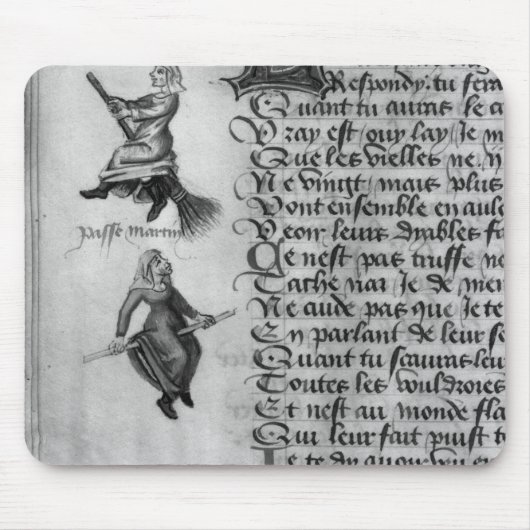 Respondy: tu fera
Quant tu auras le a
Vray est / ouy lay / Je m
Que les vielles ne. ij
Ne vingt / mais plus
Vont ensemble en aule
Veoir leurs dyables fa
Ce nest pas truffe ne
Tache nai Je de men
Ne cuide pas que Je te
En parlant de leur se
Quant tu scauras leu
Toutes les vouldroies
Et nest au monde fla
Qui leur fait puist t
Je te dy auoir veu en
passe martin